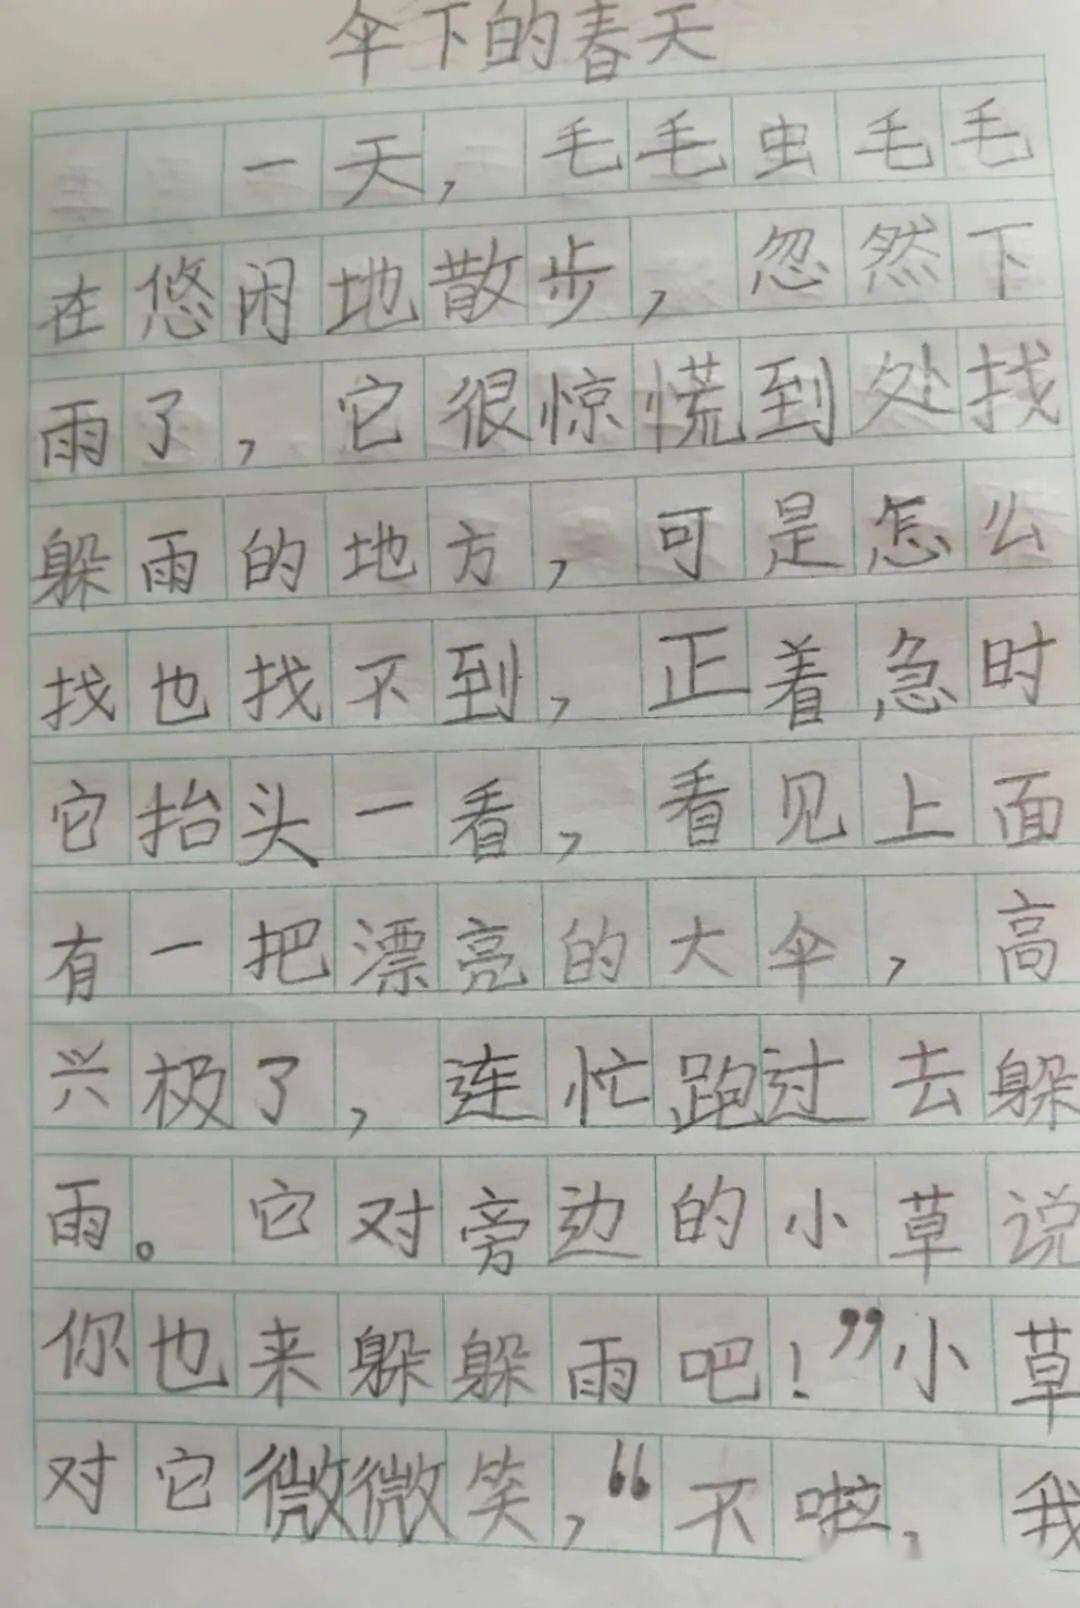 伞下的春天
一天,毛毛虫毛毛
在悠闲地散步,忽然下
雨了,它很惊慌到处找
躲雨的地方,可是怎么
找也找不到,正着急时
它抬头一看,看见上面
有一把漂亮的大伞,高
兴极了,连忙跑过去躲
雨。它对旁边的小草说
你也来躲躲雨吧!”小草
对它微微笑,“不啦,我